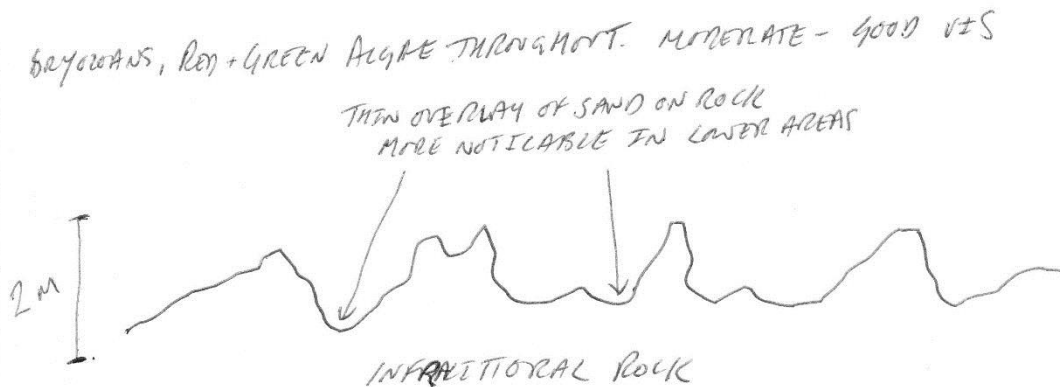 BRYOZOANS, RED + GREEN ALGAE THROUGHOUT. MODERATE - GOOD VIS
THIN OVERLAY OF SAND ON ROCK
MORE NOTICABLE IN LOWER AREAS
2M
INFRALITTORAL ROCK